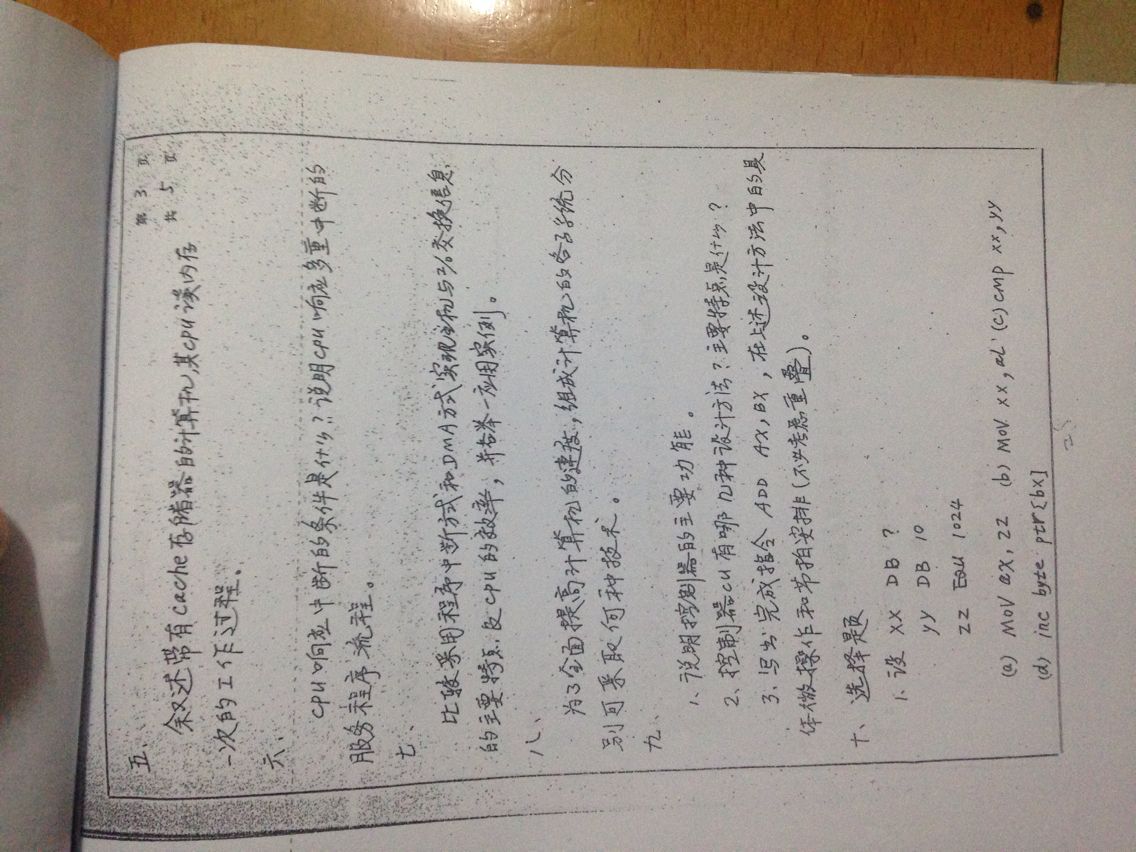 第 3 页
共 5 页
五、
叙述带有cache存储器的计算机,其CPU读内存
一次的工作过程。
六、
CPU响应中断的条件是什么?说明CPU响应多重中断的
服务程序流程。
七、
比较采用程序中断方式和DMA方式实现主机与I/O交换信息
的主要特点及CPU的效率,并各举一应用实例。
八、
为了全面提高计算机的速度,组成计算机的各子系统分
别可采取何种技术。
九、
1、说明控制器的主要功能。
2、控制器CU有哪几种设计方法?主要特点是什么?
3、写出完成指令 ADD AX,BX,在上述设计方法中的具
体微操作和节拍安排(不必考虑重叠)。
十、选择题
1、设 XX DB ?
yy DB 10
ZZ EQU 1024
(a) MOV ax, ZZ (b) MOV XX, al (c) cmp XX,yy
(d) inc byte ptr[bx]